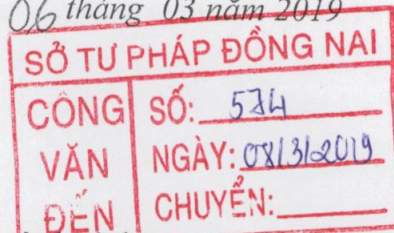 06 tháng 03 năm 2019
SỞ TƯ PHÁP ĐỒNG NAI
CÔNG VĂN ĐẾN
SỐ: 574
NGÀY: 08/3/2019
CHUYỂN: